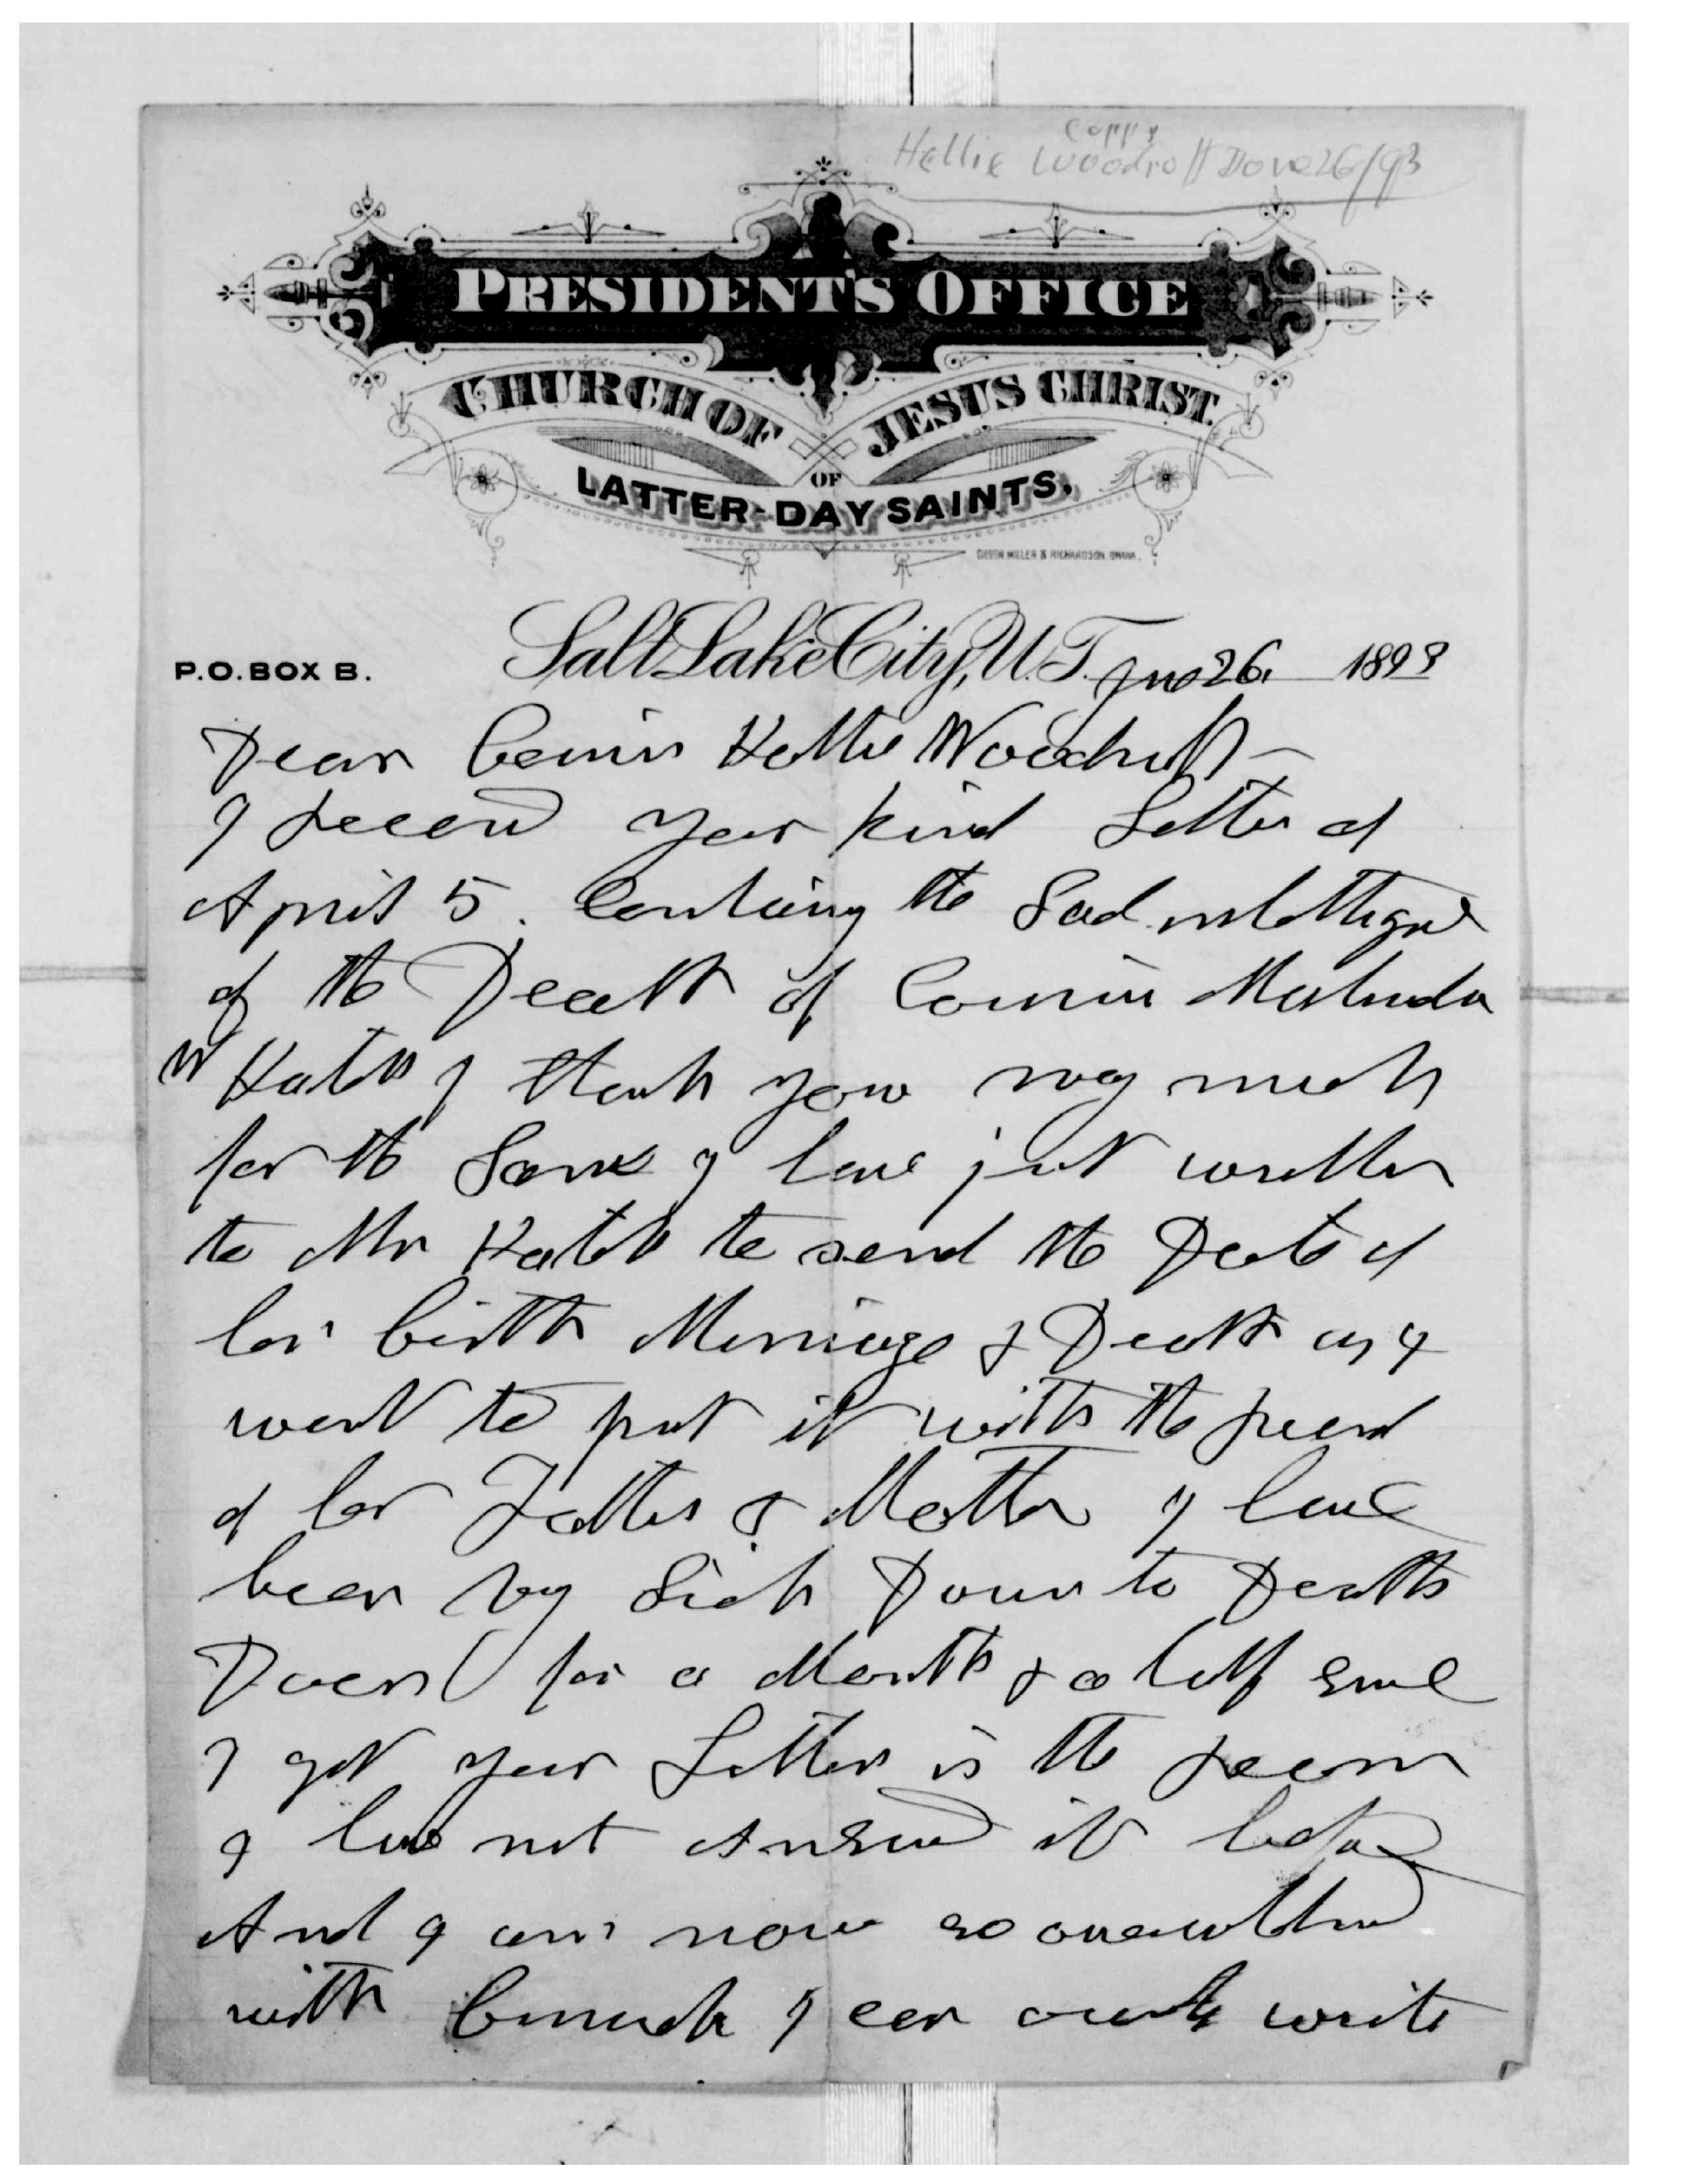 Coppy
Hellie Woodruff June 26/93
PRESIDENT'S OFFICE
CHURCH OF JESUS CHRIST
OF
LATTER-DAY SAINTS.
P.O. BOX B. Salt Lake City, U.T. June 26. 1893
Dear Cousin Hettie Woodruff
I received your kind Letter of
April 5. Containing the Sad intelligence
of the Death of Cousin Malinda
W Hatch I thank you very much
for the Same I have just written
to Mr Hatch to send the Date of
her birth Marriage & Death as I
want to put it with the record
of her Father & Mother I have
been very Sick Down to Deaths
Door for a Month & a half since
I got your Letter is the reason
I have not Answered it before
And I am now so overwhelmed
with I can ownly write